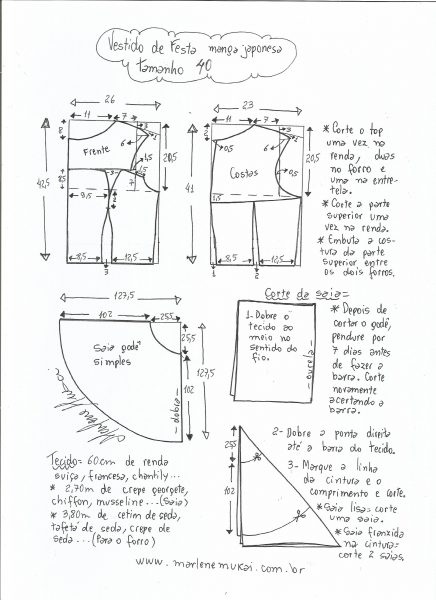 Vestido de Festa manga japonesa
tamanho 40
26
23
11
7
3
8
6
2
Frente
4,5
1,5
3
20,5
42,5
8,5
9,5
7
2
8,5
12,5
3
11
7
3
2
2
0,5
6
Costas
0,5
20,5
41
1,5
8,5
12,5
1
2
* Corte o top
uma vez na
renda, duas
no forro e
uma na entre-
tela.
* Corte a parte
superior uma
vez na renda.
* Embuta a cos-
tura da parte
superior entre
os dois forros.
127,5
102
25,5
25,5
Saia godê
simples
102
127,5
- dobra -
Marlene Mukai
Corte da saia=
1. Dobre o
tecido ao
meio no
sentido do
fio.
- ourela -
* Depois de
cortar o godê,
pendure por
7 dias antes
de fazer a
barra. Corte
novamente
acertando a
barra.
25,5
102
2- Dobre a ponta direita
até a barra do tecido.
3- Marque a linha
da cintura e o
comprimento e corte.
* Saia lisa= corte
uma saia.
* Saia franzida
na cintura=
corte 2 saias.
Tecido= 60cm de renda
suiça, francesa, chantily...
* 2,70m de crepe georgete,
chiffon, musseline... (Saia)
* 3,80m de cetim de seda,
tafetá de seda, crepe de
seda... (Para o forro)
www.marlenemukai.com.br